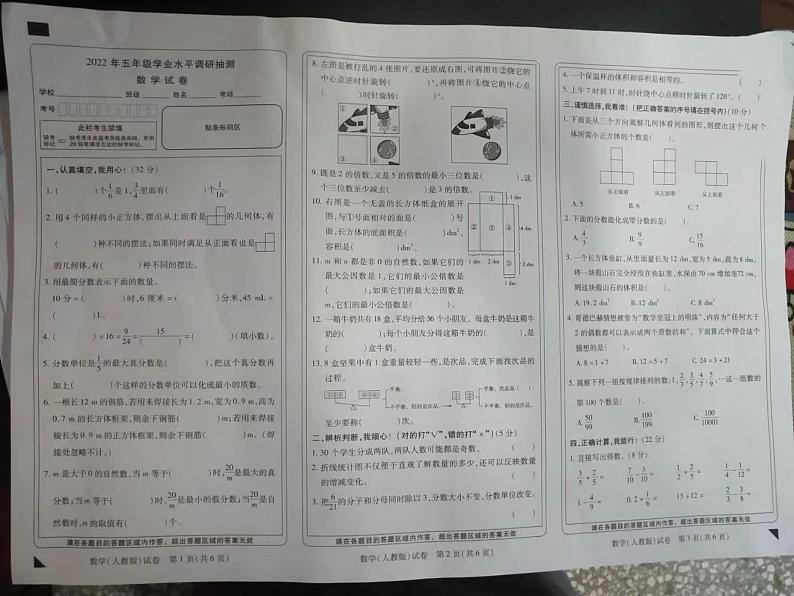 2022年五年级学业水平调研抽测
数学试卷
学校 班级 姓名 考场
考号
此栏考生禁填
缺考标记
缺考考生由监考员贴条形码，并用2B铅笔填涂左边的缺考标记。
贴条形码区
一、认真填空，我用心！(32分)
1. ( )个1/6是1，3/4里面有( )个1/16。
2. 用4个同样的小正方体，摆出从上面看是 的几何体，有
( )种不同的摆法；如果同时满足从正面看也是
的几何体，有( )种不同的摆法。
3. 用最简分数表示下面的数量。
10分=( )时，6厘米=( )分米，45 mL=
( )L。
4. ( )÷16=9/24=15/( )=( )(填小数)。
5. 分数单位是1/5的最大真分数是( )，把这个真分数再
加上( )个这样的分数单位可以化成最小的质数。
6. 一根长12 m的钢筋，若用来焊接长为1.2 m，宽为0.9 m，高为
0.7 m的长方体框架，则余下钢筋( )m；若用来焊接
棱长为0.9 m的正方体框架，则余下钢筋( )m。(焊
接处忽略不计。)
7. m是大于0的自然数，当m等于( )时，20/m是最大的真
分数；当m等于( )时，20/m是最小的假分数；当20/m是自
然数时，m的取值有( )个。
请在各题目的答题区域内作答，超出答题区域的答案无效
数学(人教版)试卷 第1页(共6页)
8. 左图是被打乱的4张图片，要还原成右图，可将图片②绕它的
中心点逆时针旋转( )，再将图片④绕它的中心点
( )时针旋转( )。
① ②
③ ④
9. 既是2的倍数，又是5的倍数的最小三位数是( )，这
个三位数至少减去( )是3的倍数。
10. 右图是一个无盖的长方体纸盒的展开
图，与①号面相对的面是( )号
面，长方体的底面积是( )dm²，
容积是( )dm³。
1 dm
② ① ③ ④
4 dm
1 dm 2 dm 2 dm
11. m和n都是非0的自然数，如果它们的
最大公因数是1，它们的最小公倍数是
( )；如果它们的最大公因数是
m，它们的最小公倍数是( )。
12. 一箱牛奶共有18盒，平均分给36个小朋友。每盒牛奶是这箱牛
奶的( )；每个小朋友分得这箱牛奶的( )，是
( )盒牛奶。
13. 8盒坚果中有1盒重量较轻一些，是次品，完成下面找次品的
过程。
平衡，
不平衡，轻的是次品。
平衡，轻的是次品。
不平衡，轻的是次品。
至少要称( )次。
二、辨析判断，我细心！(对的打“√”，错的打“×”)(5分)
1. 30个学生分成两队，两队人数可能都是奇数。 ( )
2. 折线统计图不仅便于直观了解数量的多少，还可以反映数量
的增减变化。 ( )
3. 把6/21的分子和分母同时除以3，分数大小不变，分数单位改变。
( )
请在各题目的答题区域内作答，超出答题区域的答案无效
数学(人教版)试卷 第2页(共6页)
4. 一个保温杯的体积和容积是相等的。 ( )
5. 上午7时到11时，时针绕中心点顺时针旋转了120°。 ( )
三、谨慎选择，我看准！(把正确答案的序号填在括号内)(10分)
1. 下面是从三个方向观察几何体看到的图形，则摆出这个几何
体所需小正方体的个数是( )。
从正面看 从上面看 从左面看
A. 5 B. 6 C. 7
2. 下面的分数能化成带分数的是( )。
A. 4/3 B. 9/9 C. 15/16
3. 一个长方体鱼缸，从里面量长为12 dm，宽为5 dm，高为8 dm，
将一块假山石完全浸没在鱼缸里，水深由70 cm增加至72 cm，
则这块假山石的体积是( )。
A. 19.2 dm³ B. 12 dm³ C. 120 dm³
4. 哥德巴赫猜想被誉为“数学皇冠上的明珠”，内容为“任何大于
2的偶数都可以表示成两个质数的和”。下面算式中符合这个
猜想的是( )。
A. 8=1+7 B. 12=5+7 C. 24=3+21
5. 观察下列一组按规律排列的数：1，2/3，3/5，4/7，5/9，…这一组数的
第100个数是( )。
A. 50/99 B. 100/199 C. 100/10001
四、正确计算，我能行！(22分)
1. 直接写出得数。(8分)
3/5+2/5= 7/10-3/10= 1/2+1/5= 1/4-1/12=
1-4/9= 0.2+1/6= 13÷12= 2/3+2/3=
请在各题目的答题区域内作答，超出答题区域的答案无效
数学(人教版)试卷 第3页(共6页)